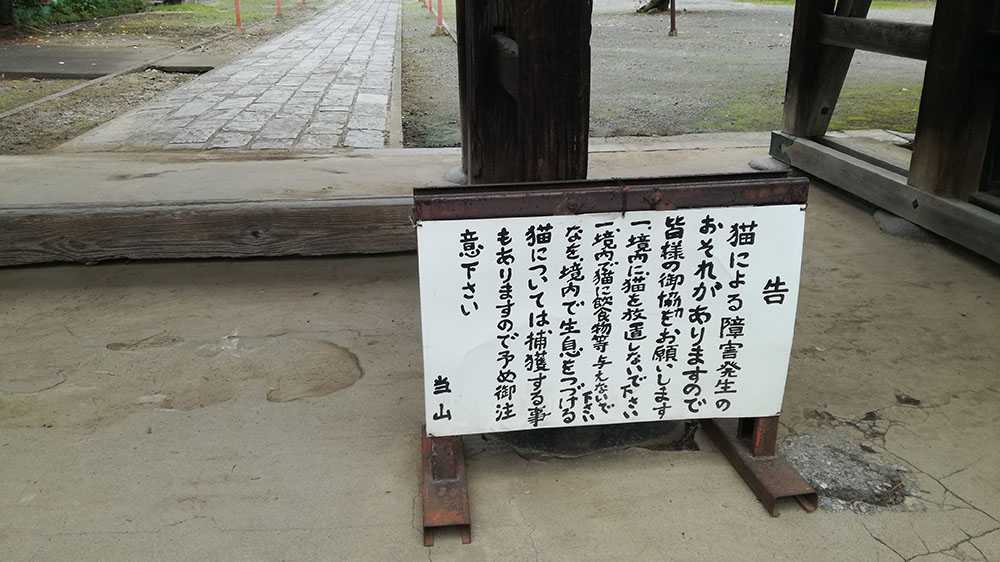 告
猫による障害発生の
おそれがありますので
皆様の御協をお願いします
一、境内に猫を放置しないで下さい
一、境内で猫に飲食物等与えないで下さい
なを、境内で生息をつづける
猫については捕獲する事
もありますので予め御注
意下さい
当山